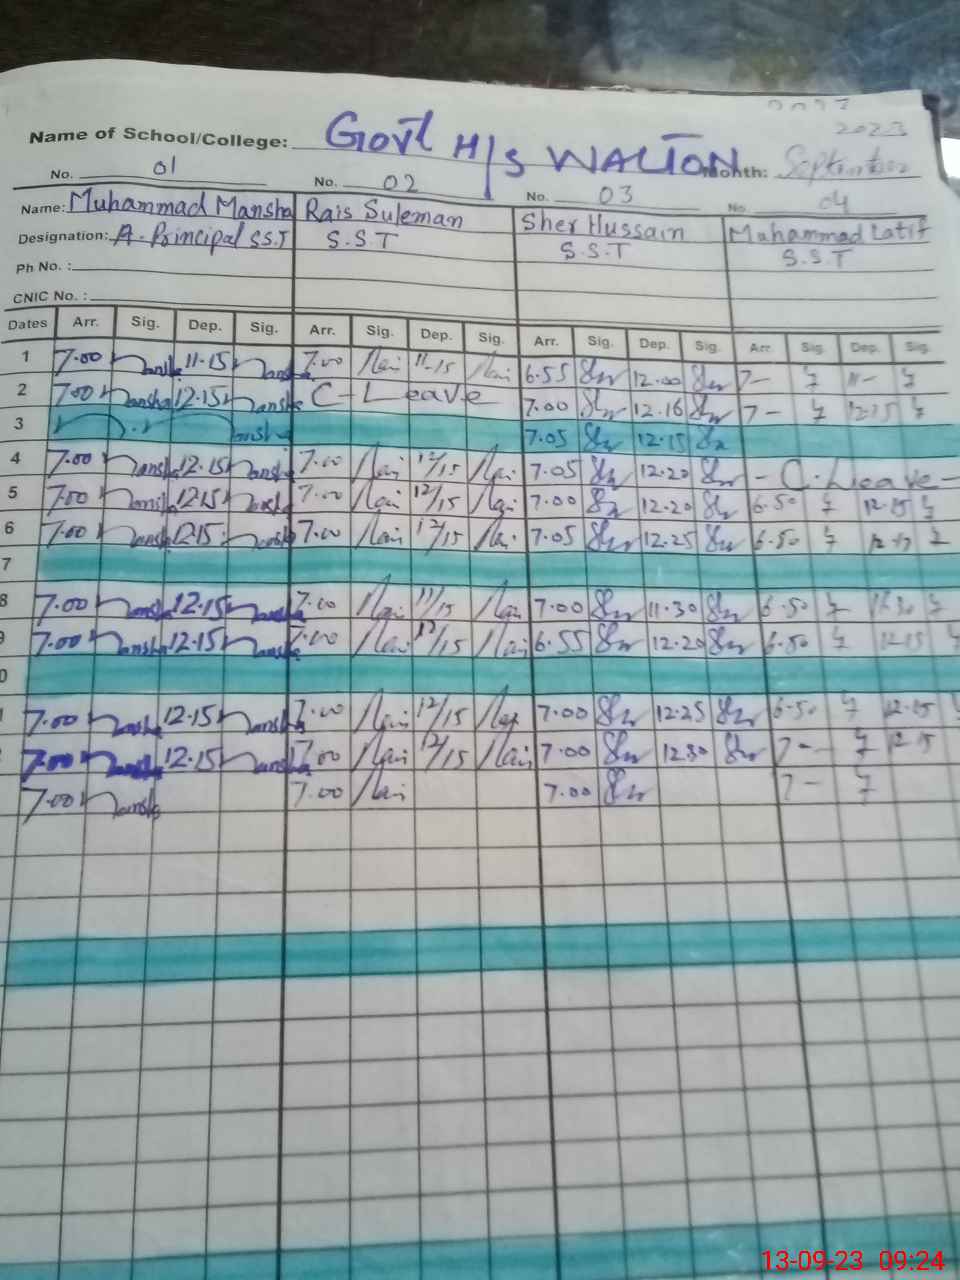 2023
Name of School/College: Govt H/S WALTON Month: September
No. 01 No. 02 No. 03 No. 04
Name: Muhammad Mansha Rais Suleman Sher Hussain Muhammad Latif
Designation: A. Principal SST S.S.T S.S.T S.S.T
Ph No. :
CNIC No. :
Dates Arr. Sig. Dep. Sig. Arr. Sig. Dep. Sig. Arr. Sig. Dep. Sig. Arr. Sig. Dep. Sig.
1 7.00 Mansha 11.15 Mansha 7.00 Rais 11-15 Rais 6.55 12.00 7- 11-
2 7.00 Mansha 12.15 Mansha C-Leave 7.00 12.16 7- 12.15
3 Mansha 7.05 12.15
4 7.00 Mansha 12.15 Mansha 7.00 Rais 12/15 Rais 7.05 12.20 - C.Leave -
5 7.00 Mansha 12.15 Mansha 7.00 Rais 12/15 Rais 7.00 12.20 6.50 12.15
6 7.00 Mansha 12.15 Mansha 7.00 Rais 12/15 Rais 7.05 12.25 6.50
7
8 7.00 Mansha 12.15 Mansha 7.00 Rais 11/15 Rais 7.00 11.30 6.50 11.30
9 7.00 Mansha 12.15 Mansha 7.00 Rais 12/15 Rais 6.55 12.20 6.50 12.15
0
7.00 Mansha 12.15 Mansha 7.00 Rais 12/15 Rais 7.00 12.25 6.50 12.15
7.00 Mansha 12.15 Mansha 7.00 Rais 12/15 Rais 7.00 12.30 7- 12.15
7.00 Mansha 7.00 Rais 7.00 7-
13-09-23 09:24